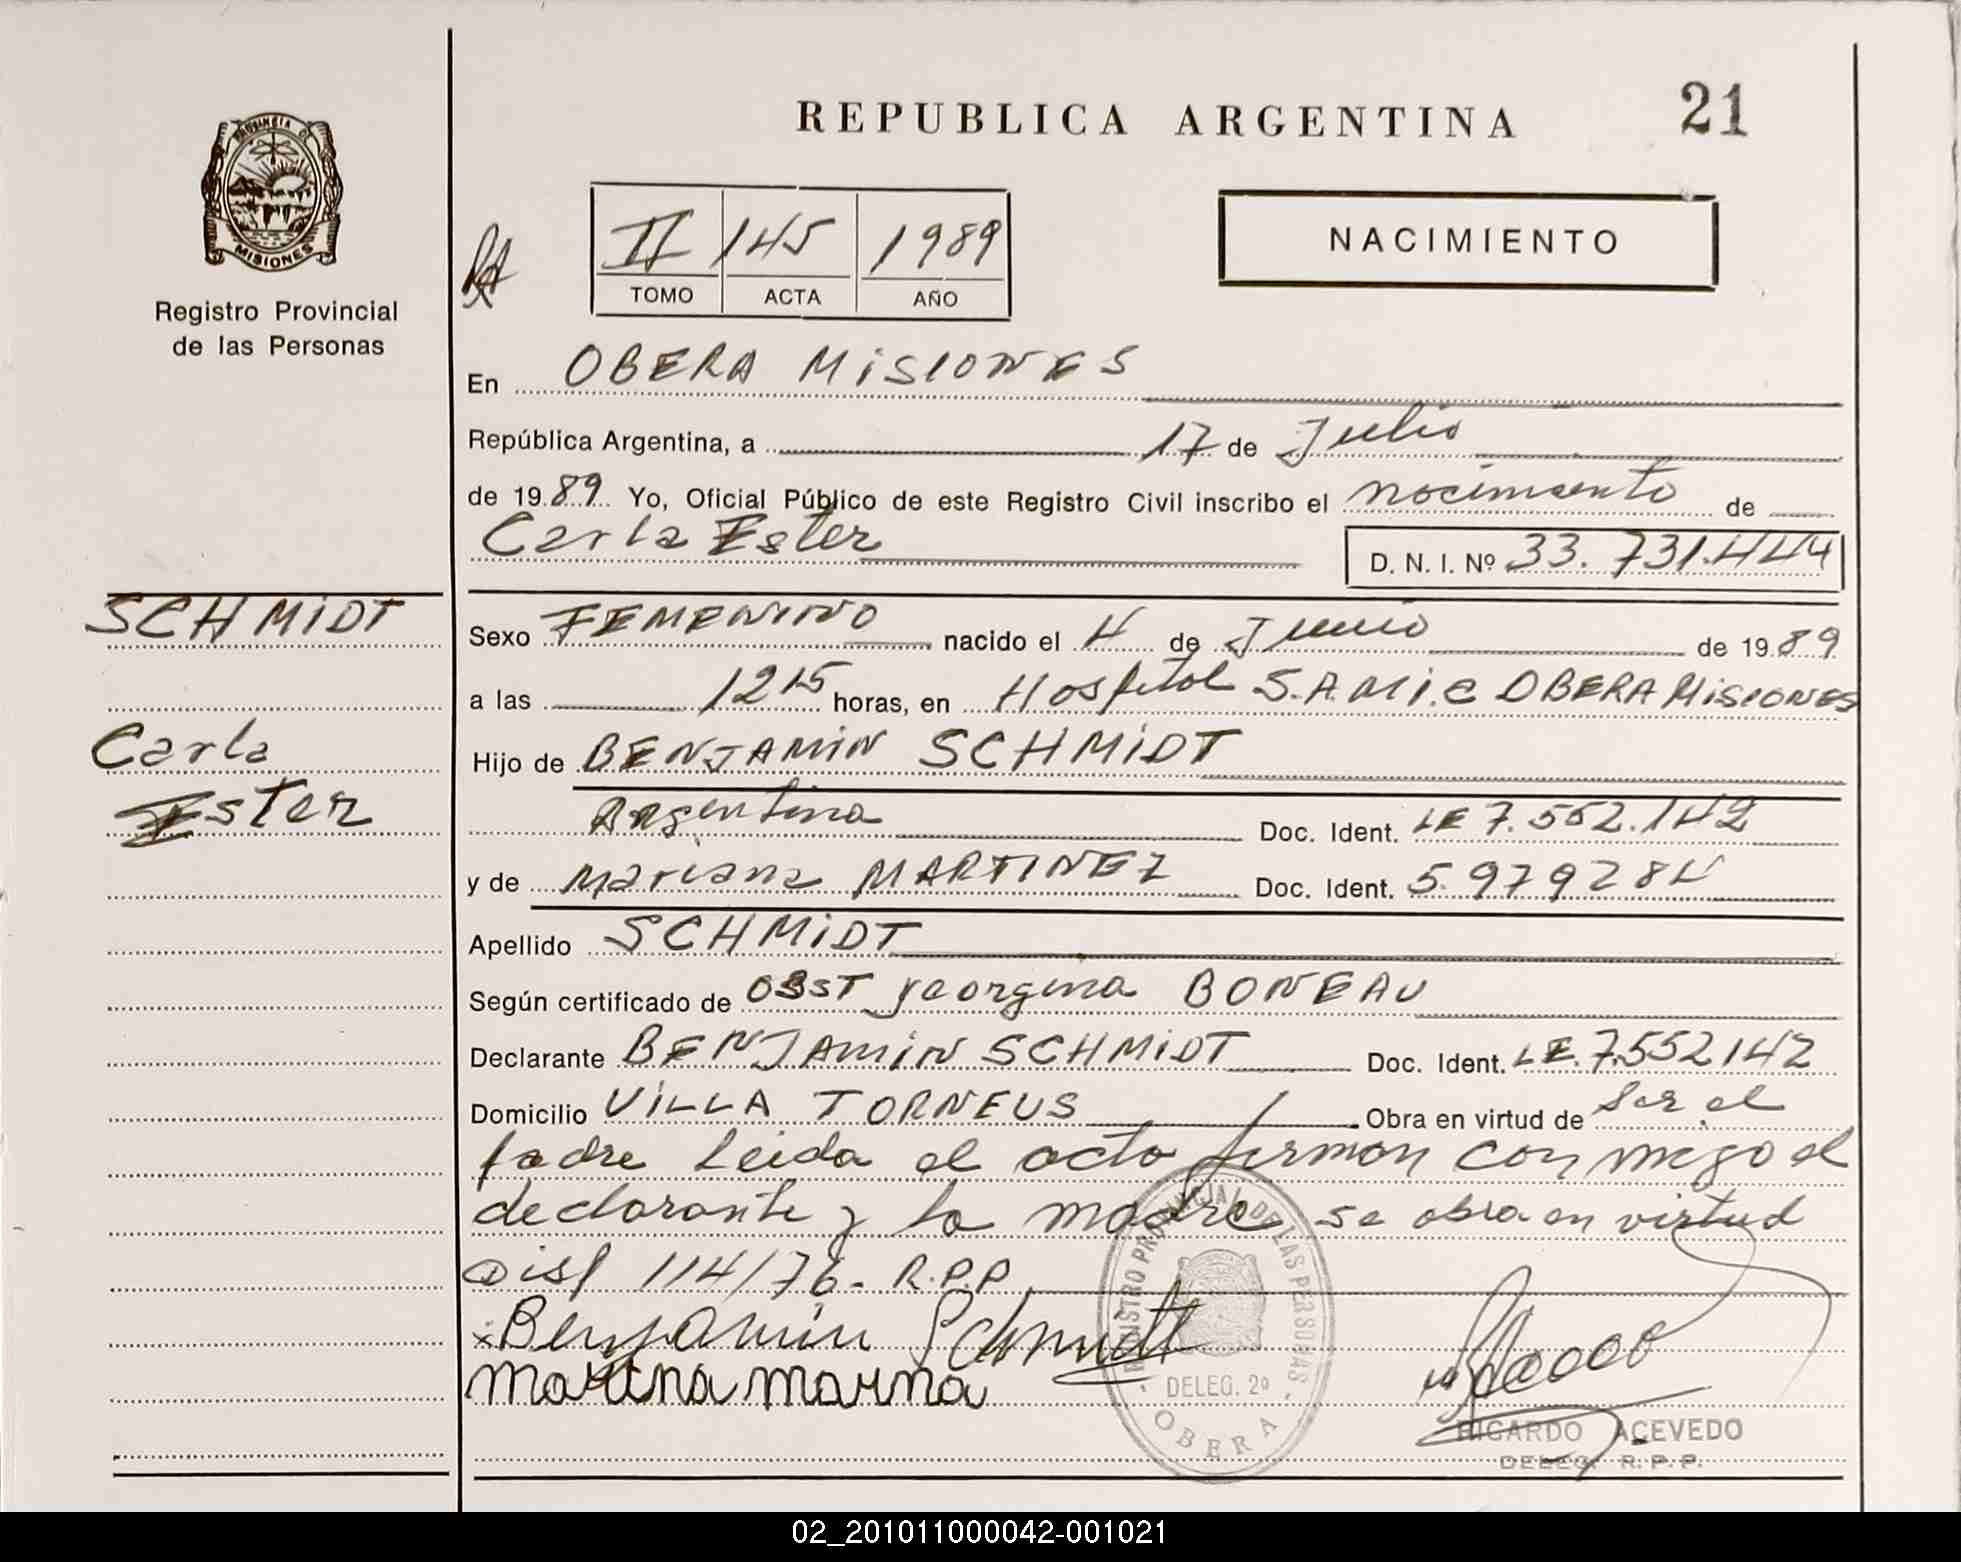 REPUBLICA ARGENTINA
21
PROVINCIA D
MISIONES
Registro Provincial
de las Personas
II 145 1989
TOMO ACTA AÑO
NACIMIENTO
En OBERA MISIONES
República Argentina, a 17 de Julio
de 1989 Yo, Oficial Público de este Registro Civil inscribo el nacimiento de
Carla Ester
D. N. I. Nº 33.731.444
SCHMIDT
Carla
Ester
Sexo FEMENINO nacido el 4 de Junio de 1989
a las 1215 horas, en Hospital S.A.M.I.C OBERA MISIONES
Hijo de BENJAMIN SCHMIDT
Argentina Doc. Ident. LE 7.552.142
y de Mariana MARTINEZ Doc. Ident. 5.979284
Apellido SCHMIDT
Según certificado de OBST georgina BONEAU
Declarante BENJAMIN SCHMIDT Doc. Ident. LE.7.552142
Domicilio VILLA TORNEUS Obra en virtud de Ser el
padre Leida el acta firman conmigo el
declarante y la madre se obra en virtud
Disp 114/76- R.P.P.
x Benjamin Schmidt
REGISTRO PROVINCIAL DE LAS PERSONAS
DELEG. 2º
OBERA
RICARDO ACEVEDO
DELEG. R.P.P.
02_201011000042-001021